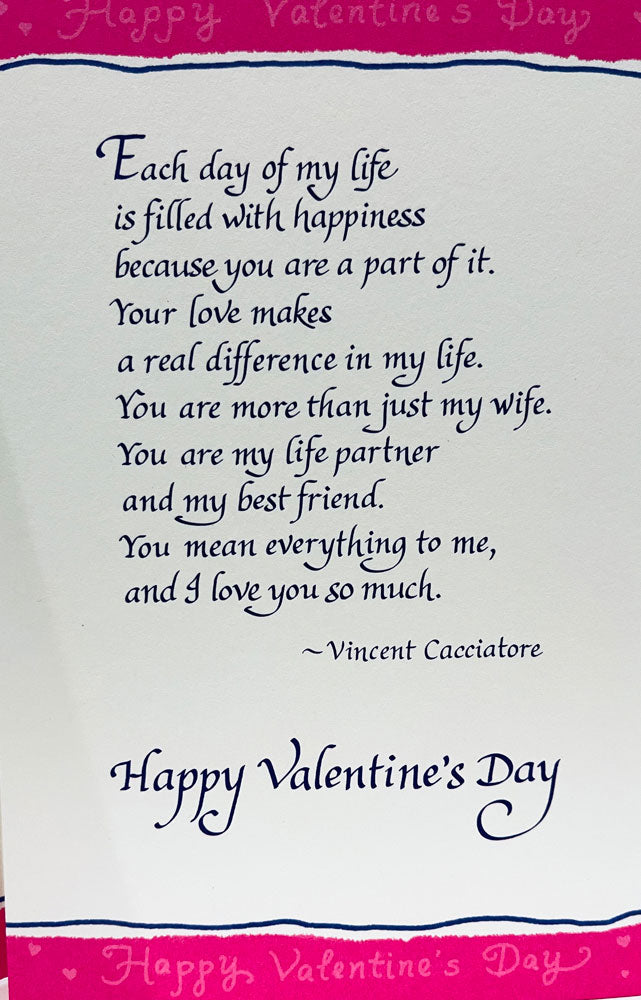 Happy Valentine's Day
Each day of my life
is filled with happiness
because you are a part of it.
Your love makes
a real difference in my life.
You are more than just my wife.
You are my life partner
and my best friend.
You mean everything to me,
and I love you so much.
~Vincent Cacciatore
Happy Valentine's Day
Happy Valentine's Day